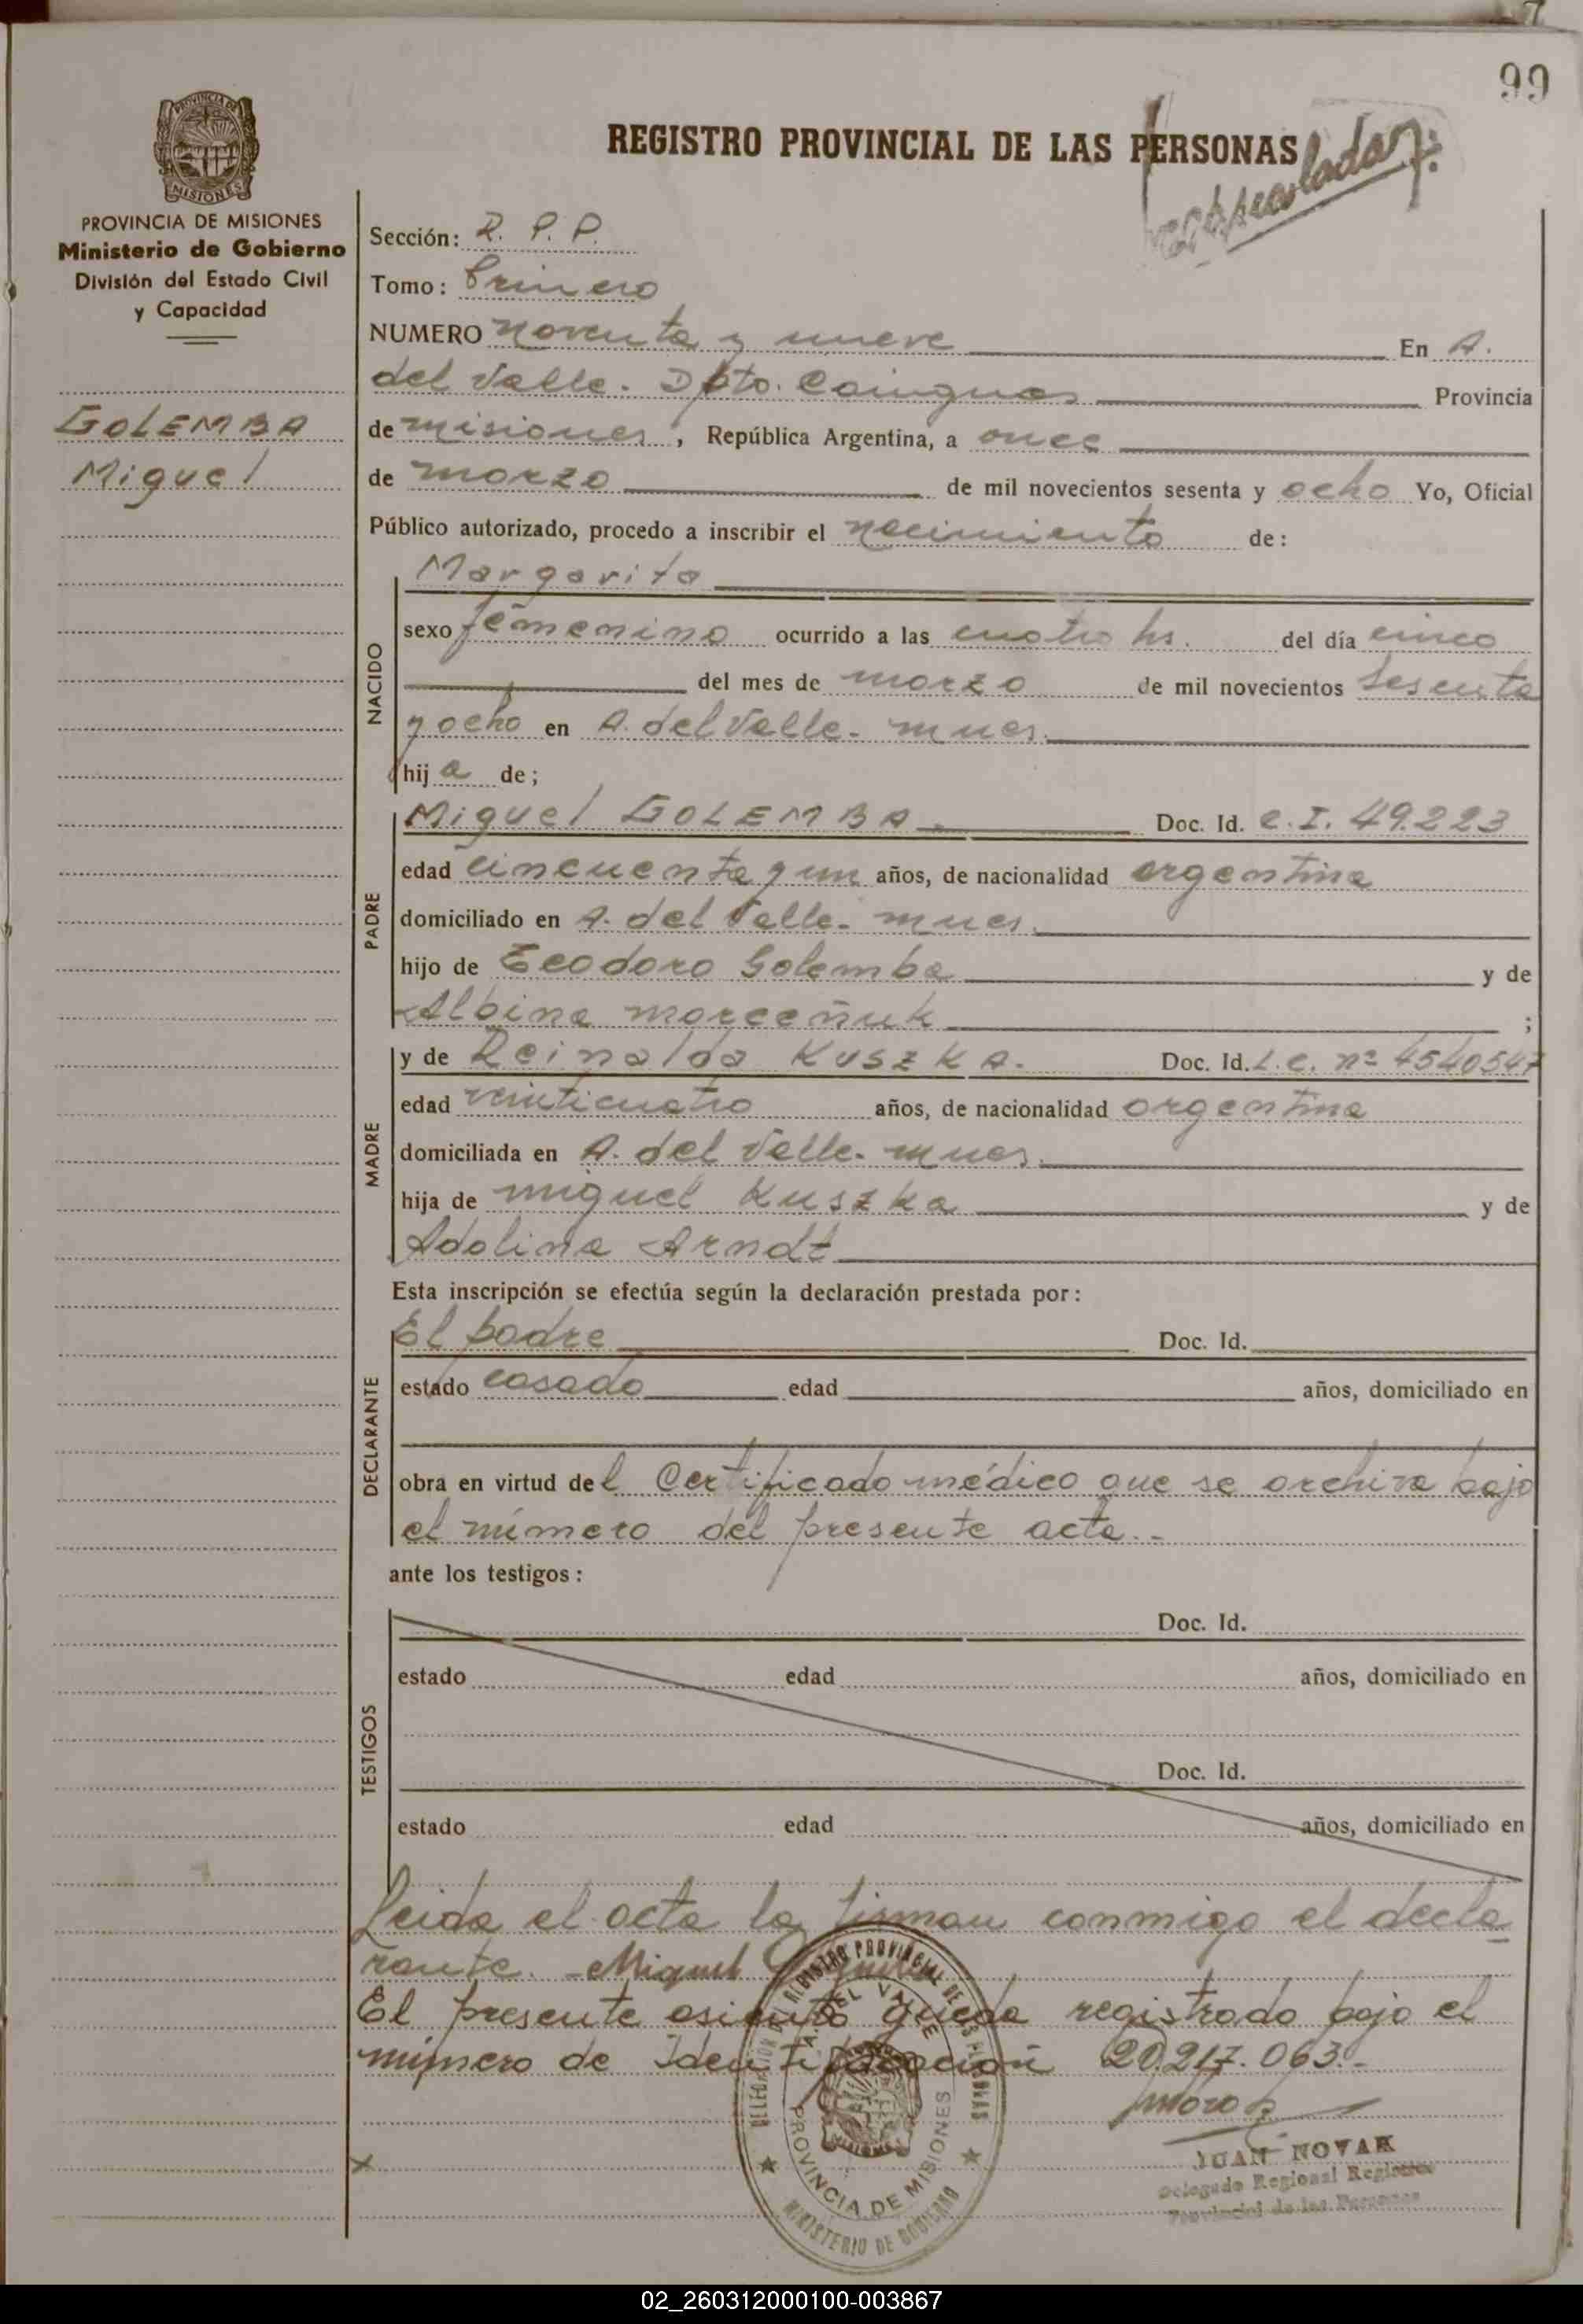 99
REGISTRO PROVINCIAL DE LAS PERSONAS
PROVINCIA DE MISIONES
Ministerio de Gobierno
División del Estado Civil
y Capacidad
GOLEMBA
Miguel
Sección: R. P. P.
Tomo: Primero
NUMERO noventa y nueve En A.
del Valle. Dpto. Cainguas Provincia
de misiones, República Argentina, a once
de marzo de mil novecientos sesenta y ocho Yo, Oficial
Público autorizado, procedo a inscribir el nacimiento de:
NACIDO
Margarita
sexo femenino ocurrido a las cuatro hs. del día cinco
del mes de marzo de mil novecientos sesenta
y ocho en A. del Valle. mnes.
hija de;
PADRE
Miguel GOLEMBA. Doc. Id. C.I. 49.223
edad cincuenta y un años, de nacionalidad argentina
domiciliado en A. del Valle. mnes.
hijo de Teodoro Golemba y de
Albina marceñuk ;
MADRE
y de Reinalda KUSZKA. Doc. Id. L.C. nº 4540547
edad veinticuatro años, de nacionalidad argentina
domiciliada en A. del Valle. mnes.
hija de miguel Kuszka y de
Adolina Arndt
Esta inscripción se efectúa según la declaración prestada por:
DECLARANTE
El padre Doc. Id.
estado casado edad años, domiciliado en
obra en virtud del Certificado médico que se archiva bajo
el número del presente acta.-
ante los testigos:
TESTIGOS
Doc. Id.
estado edad años, domiciliado en
Doc. Id.
estado edad años, domiciliado en
Leida el acta la firman conmigo el decla
rante. Miguel
El presente asiento queda registrado bajo el
número de Identificación 20.217.063.-
DELEGACION DEL REGISTRO PROVINCIAL DE LAS PERSONAS
A. DEL VALLE
PROVINCIA DE MISIONES
MINISTERIO DE GOBIERNO
JUAN NOVAK
Delegado Regional Registro
Provincial de las Personas
02_260312000100-003867